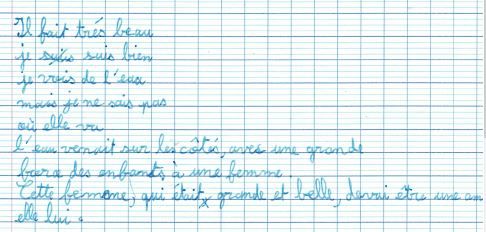 Il fait trés beau
je suis suis bien
je vois de l'eau
mais je ne sais pas
où elle va
l'eau venait sur les côtés, avec une grande
force des enfants à une femme.
Cette femme, qui était grande et belle, devai être une am
elle lui